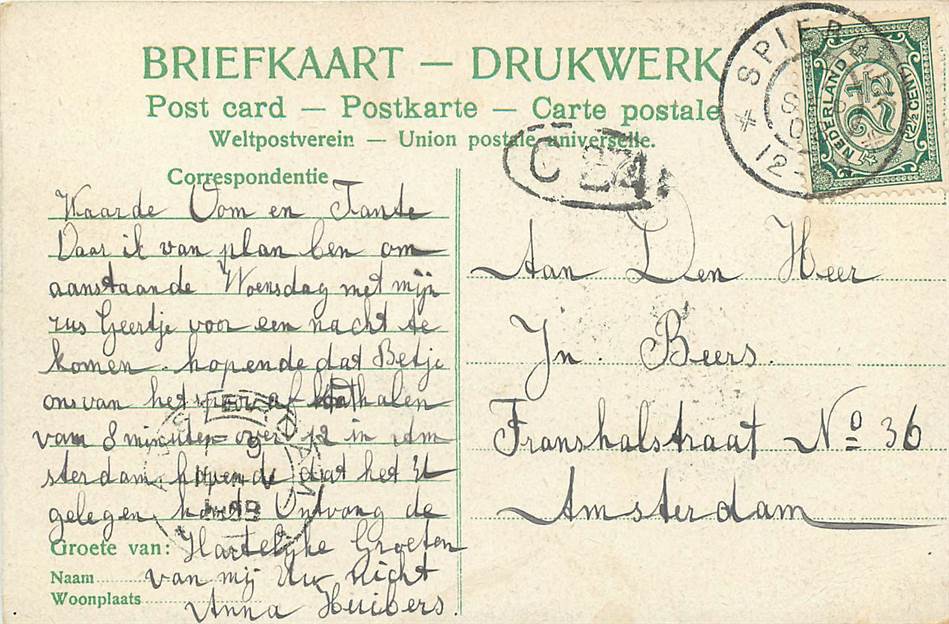 BRIEFKAART — DRUKWERK
Post card — Postkarte — Carte postale
Weltpostverein — Union postale universelle.
* SPIER *
12-
NEDERLAND
2½
(2½ CENT)
C 27A
Correspondentie
Waarde Oom en Tante
Daar ik van plan ben om
aanstaande Woensdag met mijn
zus Geertje voor een nacht te
komen. hopende dat Betje
ons van het spoor af
van 8 minuten over 12 in Am
sterdam. hopende dat het U
gelegen Ontvang de
Groete van: Hartelyke Groeten
Naam van mij Uw nicht
Woonplaats Anna Huibers.
Aan Den Heer
Jn. Beers.
Franshalstraat No 36
Amsterdam